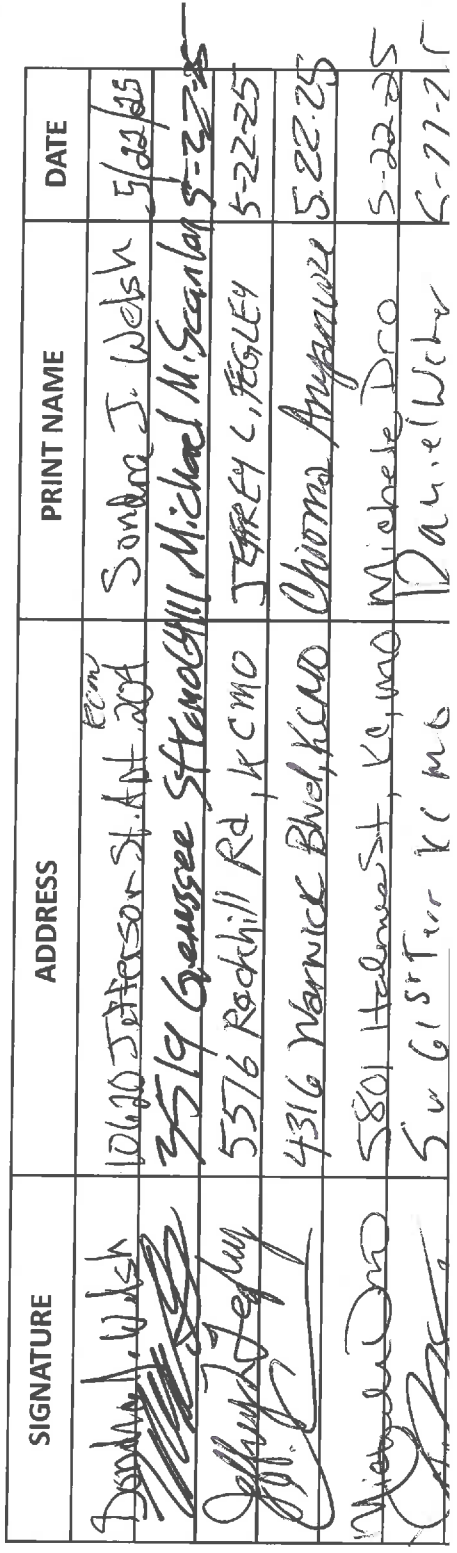 SIGNATURE ADDRESS PRINT NAME DATE
Sondra J. Welsh 10620 Jefferson St. Apt. 204 KCMO Sondra J. Welsh 5/22/25
3519 Genessee St KCMO 64111 Michael M. Scanlon 5-22-25
Jeffrey L. Fegley 5516 Rockhill Rd, KCMO JEFFREY L. FEGLEY 5-22-25
4316 Warwick Blvd, KCMO Chioma Anyanwu 5.22.25
Michele Dro 5801 Holmes St, KC, MO Michele Dro 5-22-25
5 W 61st Terr KC MO Daniel